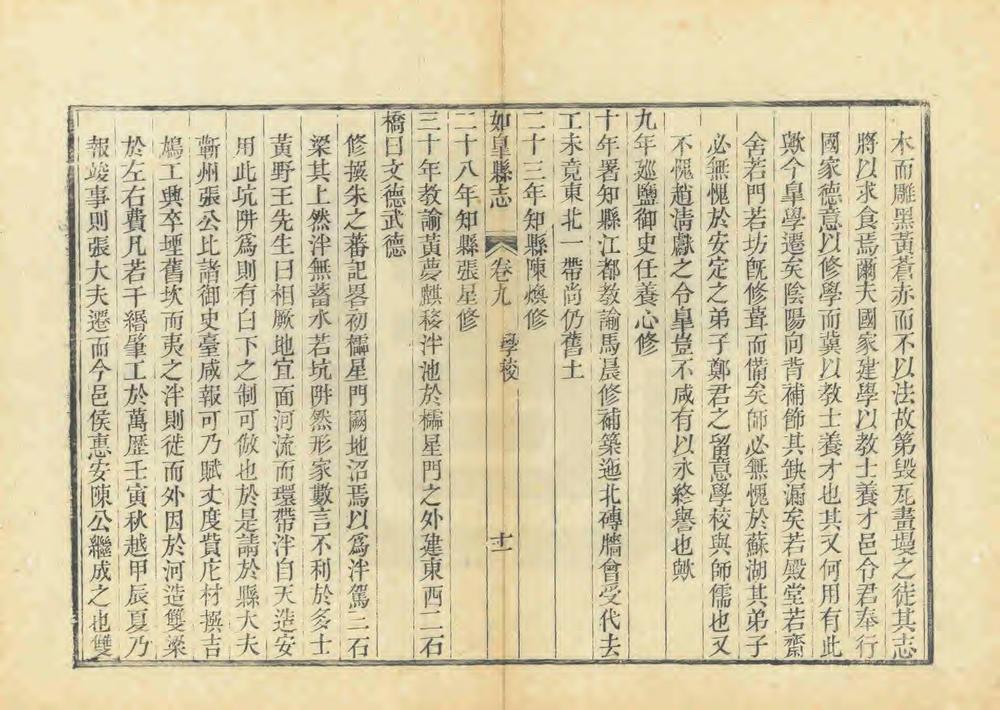 木而雕黑黃蒼赤而不以法故第毀瓦畫墁之徒其志
將以求食焉爾夫國家建學以教士養才邑令君奉行
國家德意以修學而冀以教士養才也其又何用有此
歟今皐學遷矣陰陽向背補飾其缺漏矣若殿堂若齋
舍若門若坊旣修葺而備矣師必無愧於蘇湖其弟子
必無愧於安定之弟子鄭君之留意學校與師儒也又
不愧趙淸獻之令皐豈不咸有以永終譽也歟
九年廵鹽御史任養心修
十年署知縣江都教諭馬晨修補築迤北磚牆會受代去
工未竟東北一帶尚仍舊土
二十三年知縣陳煥修
二十八年知縣張星修
如皐縣志
卷九
學校
十二
三十年教諭黃夢麒移泮池於櫺星門之外建東西二石
橋曰文德武德
修撰朱之蕃記畧初櫺星門闢地沼焉以爲泮駕三石
梁其上然泮無蓄水若坑阱然形家數言不利於多士
黃野王先生曰相厥地宜面河流而環帶泮自天造安
用此坑阱爲則有白下之制可倣也於是請於縣大夫
蘄州張公比諸御史臺咸報可乃賦丈度貲庀材撰吉
鳩工興卒堙舊坎而夷之泮則徙而外因於河造雙梁
於左右費凡若干緡肇工於萬歷壬寅秋越甲辰夏乃
報竣事則張大夫遷而今邑侯惠安陳公繼成之也雙